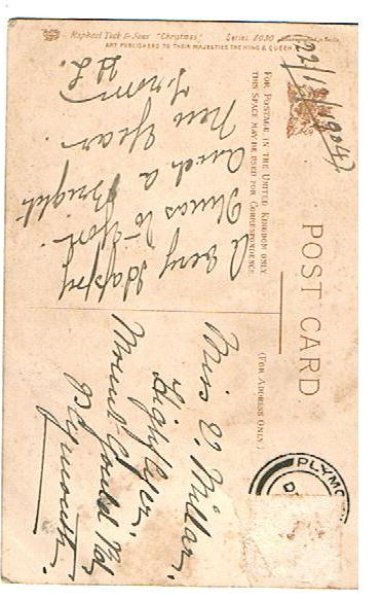 Raphael Tuck & Sons "Christmas" Series 8030
ART PUBLISHERS TO THEIR MAJESTIES THE KING & QUEEN
POST CARD
FOR POSTAGE IN THE UNITED KINGDOM ONLY
THIS SPACE MAY BE USED FOR CORRESPONDENCE
(FOR ADDRESS ONLY)
22/12/1904
A Very Happy
Xmas to You.
and a Bright
New Year.
From
Miss E. Millar.
Highfern.
Mount Gould Rd
Plymouth.
PLYMO